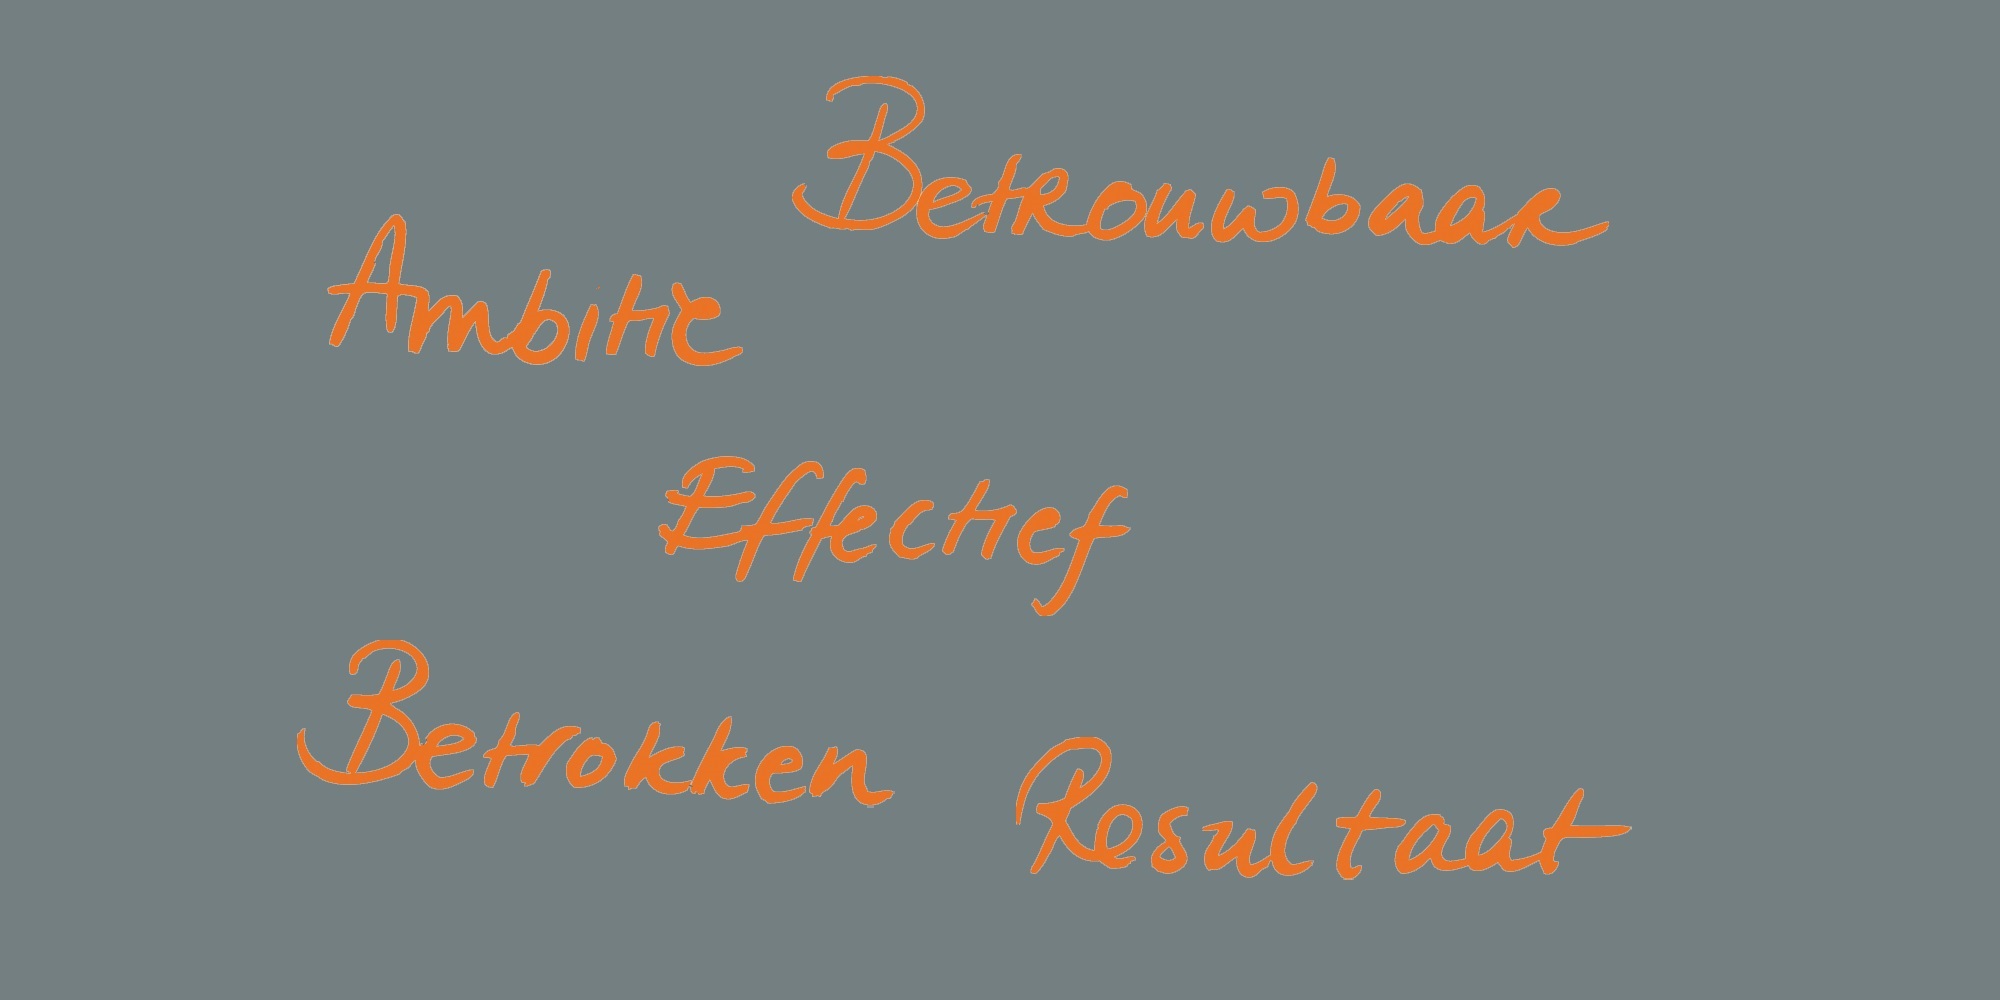 Betrouwbaar
Ambitie
Effectief
Betrokken
Resultaat